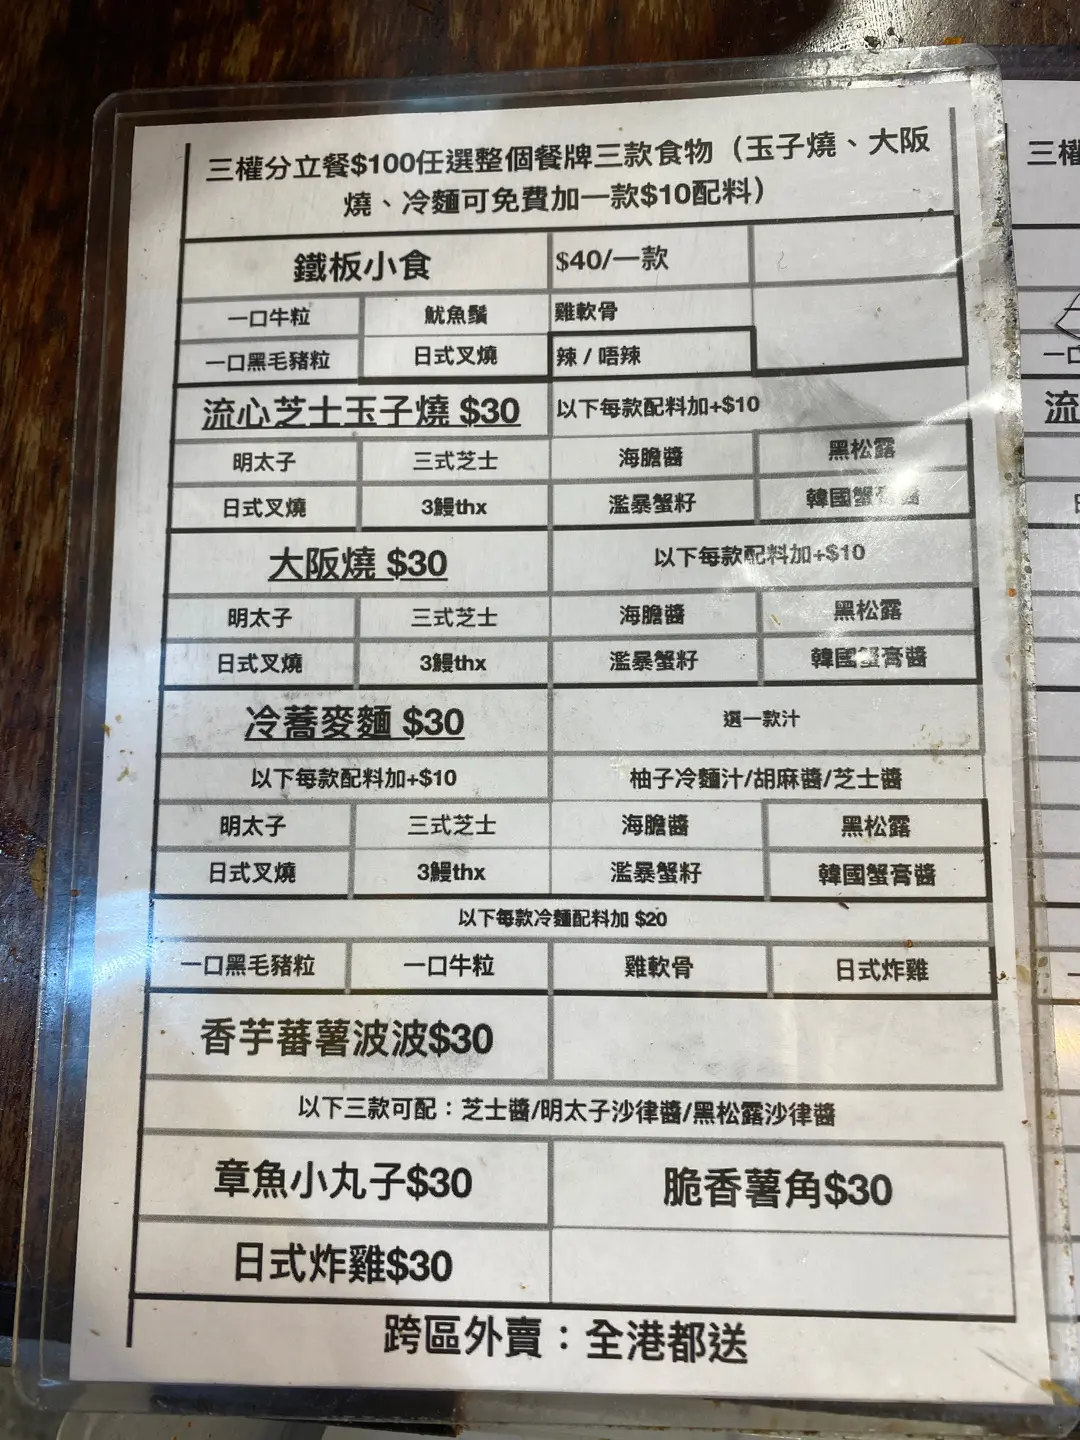 三權分立餐$100任選整個餐牌三款食物（玉子燒、大阪
燒、冷麵可免費加一款$10配料）
鐵板小食 $40/一款
一口牛粒 魷魚鬚 雞軟骨
一口黑毛豬粒 日式叉燒 辣 / 唔辣
流心芝士玉子燒 $30 以下每款配料加+$10
明太子 三式芝士 海膽醬 黑松露
日式叉燒 3鰻thx 濫暴蟹籽 韓國蟹膏醬
大阪燒 $30 以下每款配料加+$10
明太子 三式芝士 海膽醬 黑松露
日式叉燒 3鰻thx 濫暴蟹籽 韓國蟹膏醬
冷蕎麥麵 $30 選一款汁
以下每款配料加+$10 柚子冷麵汁/胡麻醬/芝士醬
明太子 三式芝士 海膽醬 黑松露
日式叉燒 3鰻thx 濫暴蟹籽 韓國蟹膏醬
以下每款冷麵配料加 $20
一口黑毛豬粒 一口牛粒 雞軟骨 日式炸雞
香芋蕃薯波波$30
以下三款可配：芝士醬/明太子沙律醬/黑松露沙律醬
章魚小丸子$30 脆香薯角$30
日式炸雞$30
跨區外賣：全港都送
三權
一口
流